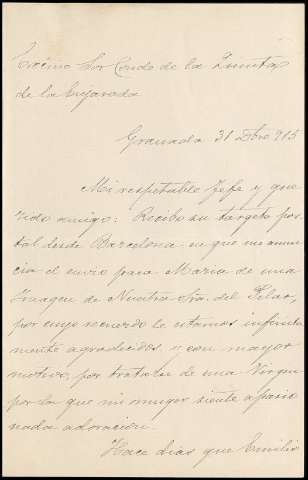 Excmo Sor Conde de la Quinta
de la Enjarada
Granada 31 Dbre 913
Mi respetable Jefe y que
rido amigo: Recibo su targeta pos
tal desde Barcelona en que me anun
cia el envio para Maria de una
Imagen de Nuestra Sra. del Pilar,
por cuyo recuerdo le estamos infinita
mente agradecidos y con mayor
motivo, por tratarse de una Virgen
por la que mi muger siente apasio
nada adoración.
Hace dias que Emilio